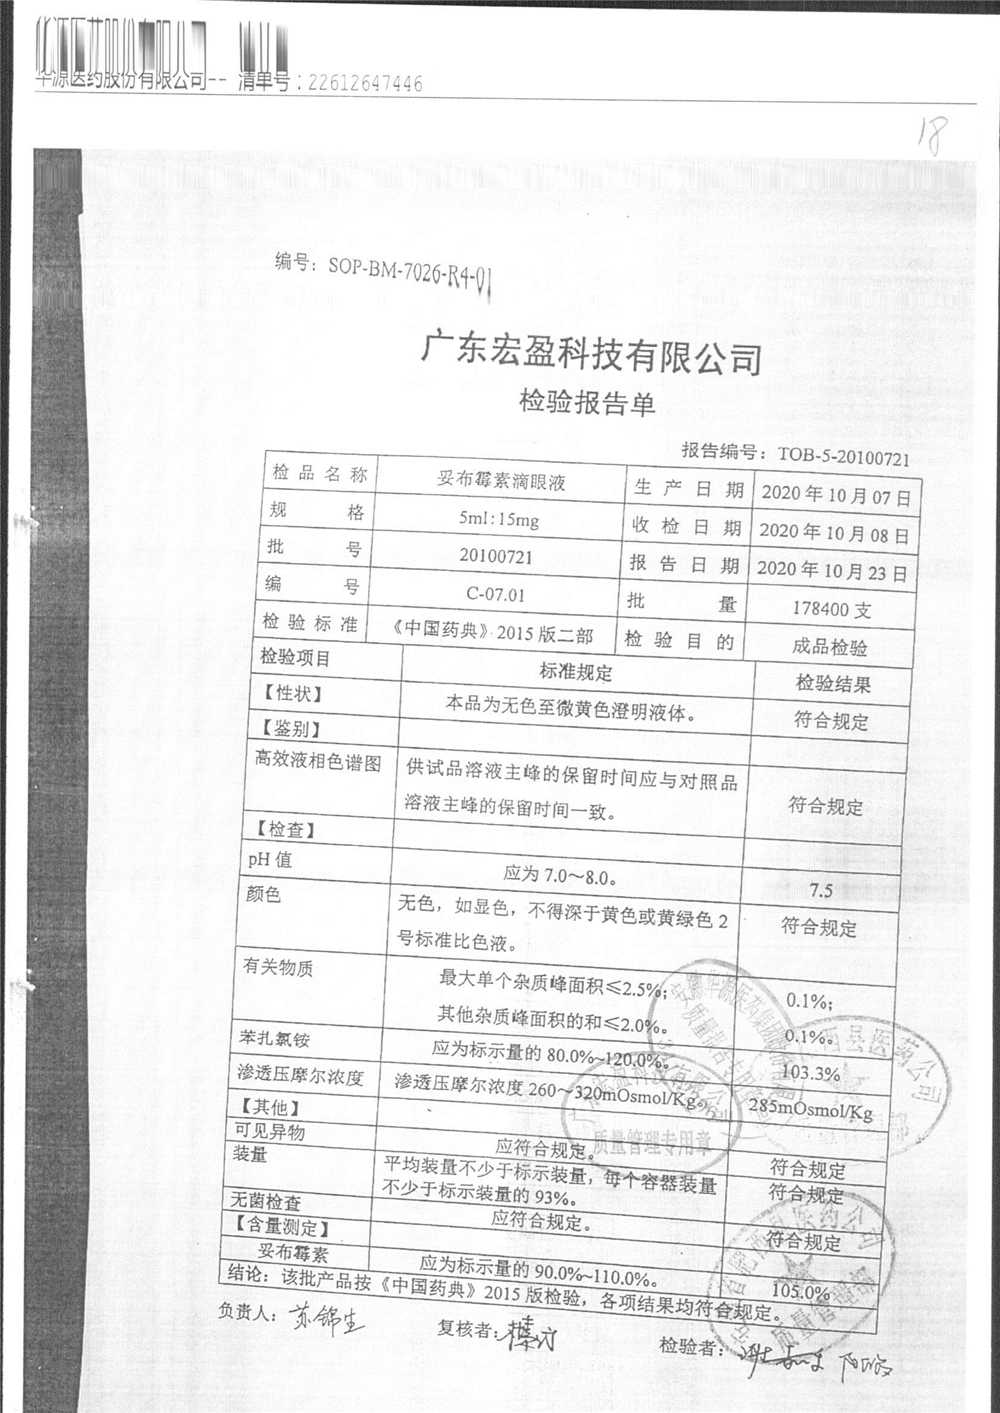 华源医药股份有限公司-- 清单号:22612647446
18
编号: SOP-BM-7026-R4-01
广东宏盈科技有限公司
检验报告单
报告编号: TOB-5-20100721
检品名称 妥布霉素滴眼液 生产日期 2020年10月07日
规格 5ml:15mg 收检日期 2020年10月08日
批号 20100721 报告日期 2020年10月23日
编号 C-07.01 批量 178400支
检验标准 《中国药典》2015版二部 检验目的 成品检验
检验项目 标准规定 检验结果
【性状】 本品为无色至微黄色澄明液体。 符合规定
【鉴别】
高效液相色谱图 供试品溶液主峰的保留时间应与对照品
溶液主峰的保留时间一致。 符合规定
【检查】
pH值 应为7.0～8.0。 7.5
颜色 无色，如显色，不得深于黄色或黄绿色2
号标准比色液。 符合规定
有关物质 最大单个杂质峰面积≤2.5%； 0.1%；
其他杂质峰面积的和≤2.0%。 0.1%。
苯扎氯铵 应为标示量的80.0%~120.0%。 103.3%
渗透压摩尔浓度 渗透压摩尔浓度260～320mOsmol/Kg。 285mOsmol/Kg
【其他】
可见异物 应符合规定。 符合规定
装量 平均装量不少于标示装量，每个容器装量
不少于标示装量的93%。 符合规定
无菌检查 应符合规定。 符合规定
【含量测定】
妥布霉素 应为标示量的90.0%~110.0%。 105.0%
结论：该批产品按《中国药典》2015版检验，各项结果均符合规定。
负责人: 苏锦生 复核者: 检验者:
质量管理专用章